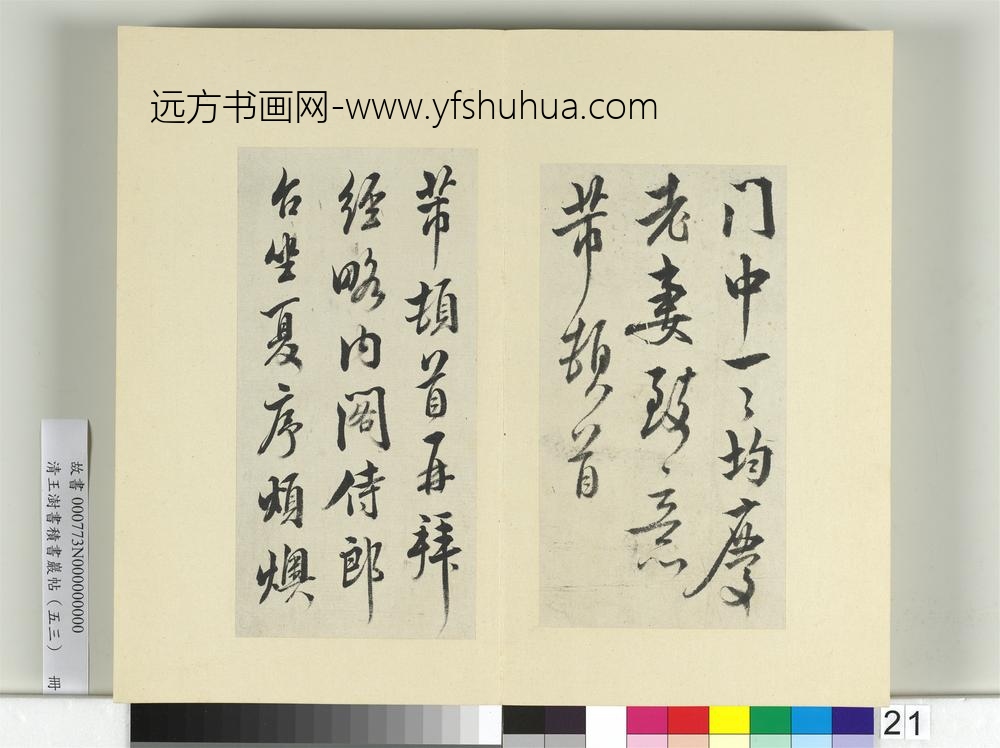 远方书画网-www.yfshuhua.com
門中一〻均慶
老妻致意
芾頓首
芾頓首再拜
經略内閣侍郎
台坐夏序燠
故書 000773N000000000
清王澍書積書巖帖（五三） 冊
21